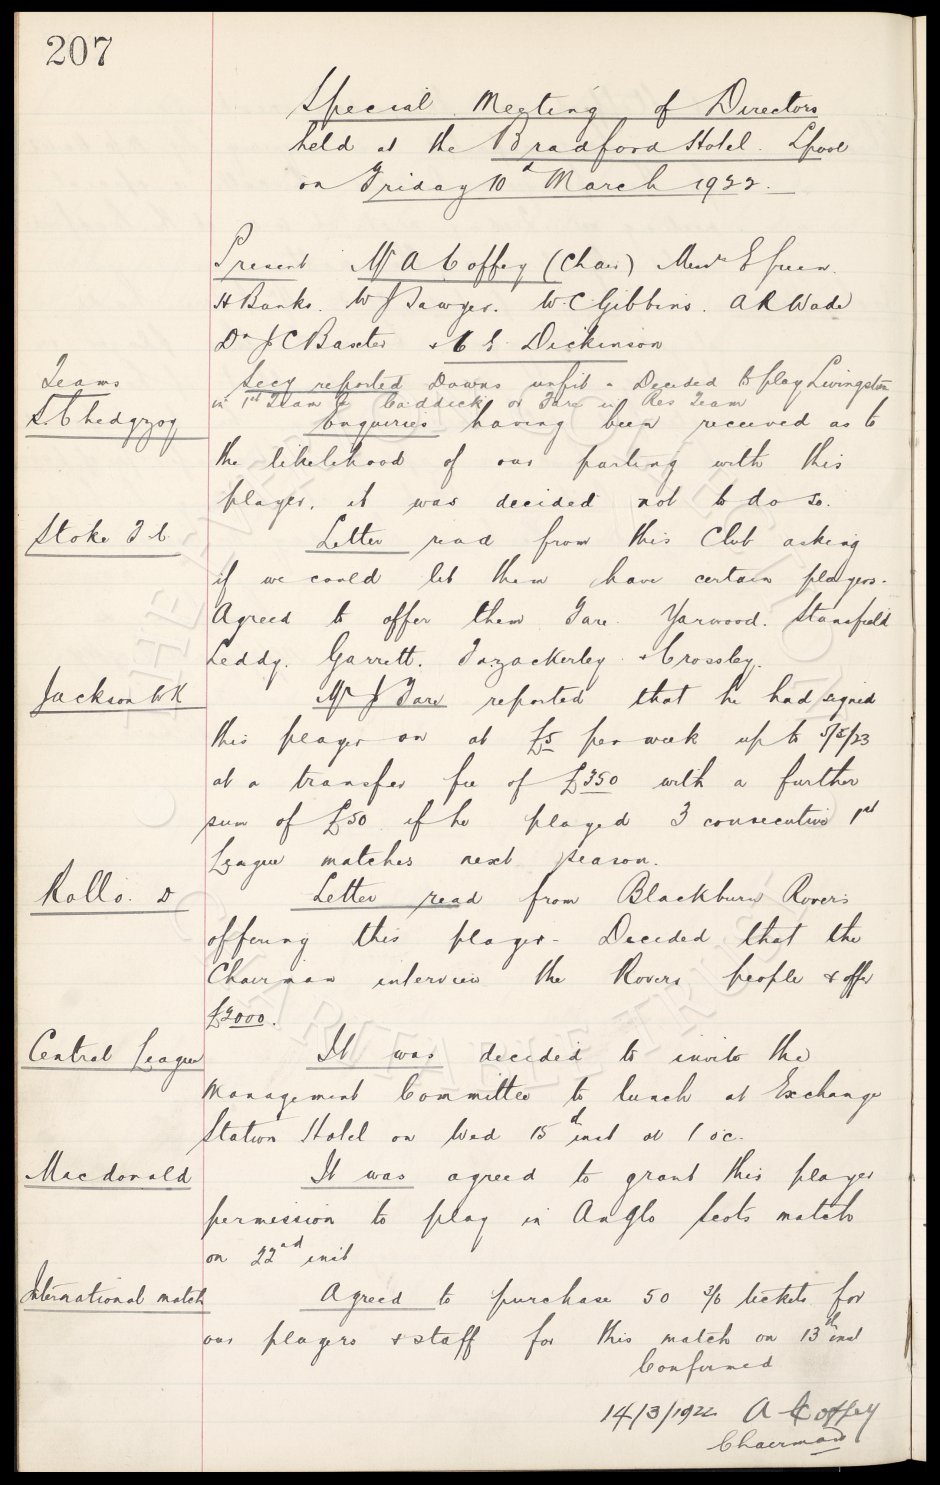 207
Special Meeting of Directors
held at the Bradford Hotel. Lpool
on Friday 10d March 1922.
Present Mr A Coffey (Chair) Messrs E Green.
H Banks. W J Sawyer. W C Gibbins. A R Wade
Dr J C Baxter & C E Dickinson
Teams
Secy reported Downs unfit - Decided to play Livingston
in 1st Team & Caddick or Fare in Res Team
S. Chedgzoy
Enquiries having been received as to
the likelihood of our parting with this
player, it was decided not to do so.
Stoke F C
Letter read from this Club asking
if we could let them have certain players.
Agreed to offer them Fare. Yarwood. Stansfield
Leddy. Garrett. Fazackerley & Crossley.
Jackson W K
Mr J Fare reported that he had signed
this player on at £5 per week up to 5/5/23
at a transfer fee of £350 with a further
sum of £50 if he played 3 consecutive 1st
League matches next season.
Rollo. D
Letter read from Blackburn Rovers
offering this player - Decided that the
Chairman interview the Rovers people & offer
£2000.
Central League
It was decided to invite the
Management Committee to lunch at Exchange
Station Hotel on Wed 15d inst at 1 oc.
Macdonald
It was agreed to grant this player
permission to play in Anglo Scots match
on 22nd inst
International match
Agreed to purchase 50 3/6 tickets for
our players & staff for this match on 13th inst
Confirmed
14/3/1922 A Coffey
Chairman